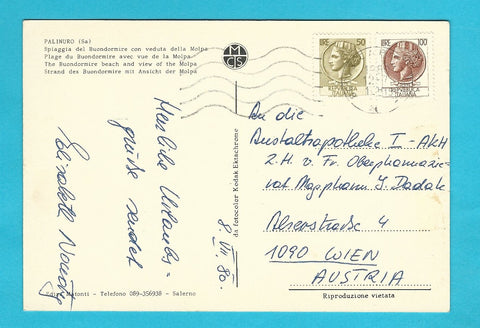 PALINURO (Sa)
Spiaggia del Buondormire con veduta della Molpa
Plage du Buondormire avec vue de la Molpa
The Buondormire beach and view of the Molpa
Strand des Buondormire mit Ansicht der Molpa
MCS
LIRE 50
REPUBBLICA
ITALIANA
LIRE 100
REPUBBLICA
ITALIANA
Herzliche Urlaubs=
grüße sendet
Elisabeth
8. VII. 80.
da fotocolor Kodak Ektachrome
An die
Anstaltsapotheke I - AKH
z.H. v. Fr. Oberpharmazie-
rat Mag. pharm. J. Dadak
Alserstraße 4
1090 WIEN
AUSTRIA
Telefono 089-356938 - Salerno
Riproduzione vietata